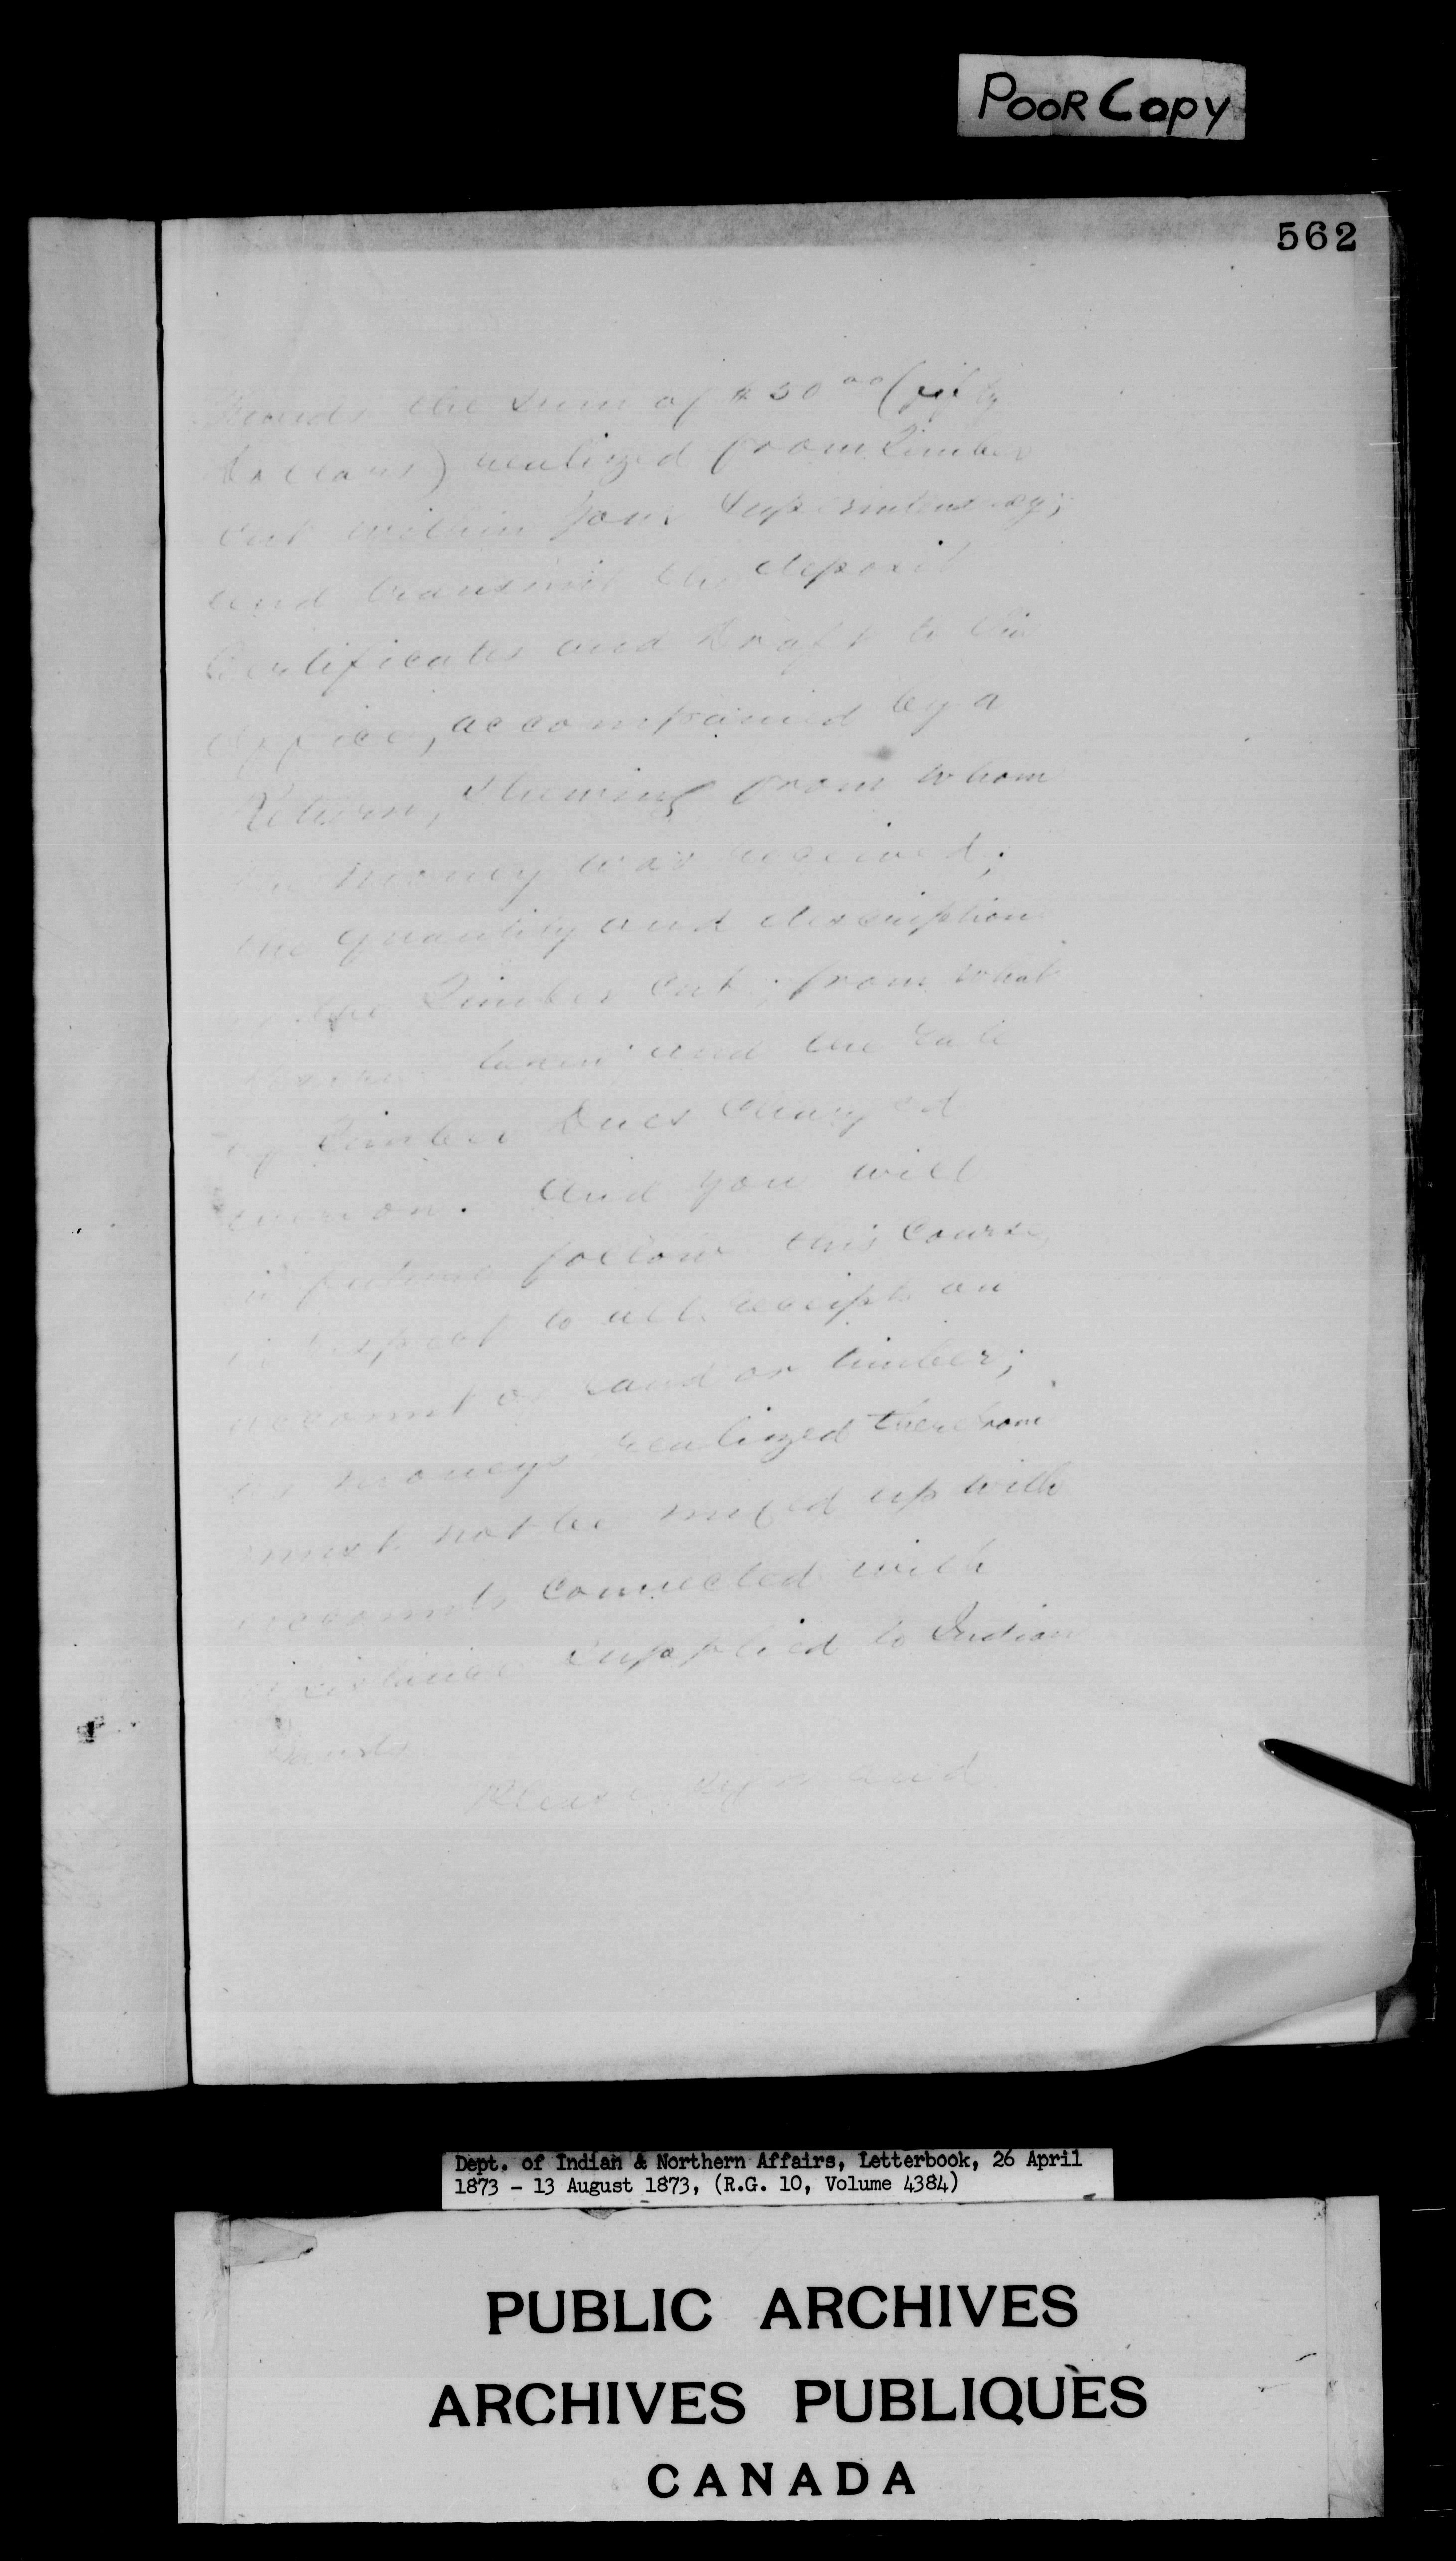 POOR COPY
562
the sum of $50 00 (fifty
Dollars) realized from Timber
cut within your Superintendency;
and transmit the deposit
Certificates and Draft to this
Office, accompanied by a
Return, shewing from whom
the money was received;
the quantity and description
of the Timber cut; from what
taken and the rate
of Timber Dues Charged
thereon. And you will
in future follow this Course
in respect to all receipts on
account of land or timber;
as moneys realized therefrom
must not be mixed up with
accounts connected with
supplied to Indian
Please sign and
Dept. of Indian & Northern Affairs, Letterbook, 26 April
1873 - 13 August 1873, (R.G. 10, Volume 4384)
PUBLIC ARCHIVES
ARCHIVES PUBLIQUES
CANADA